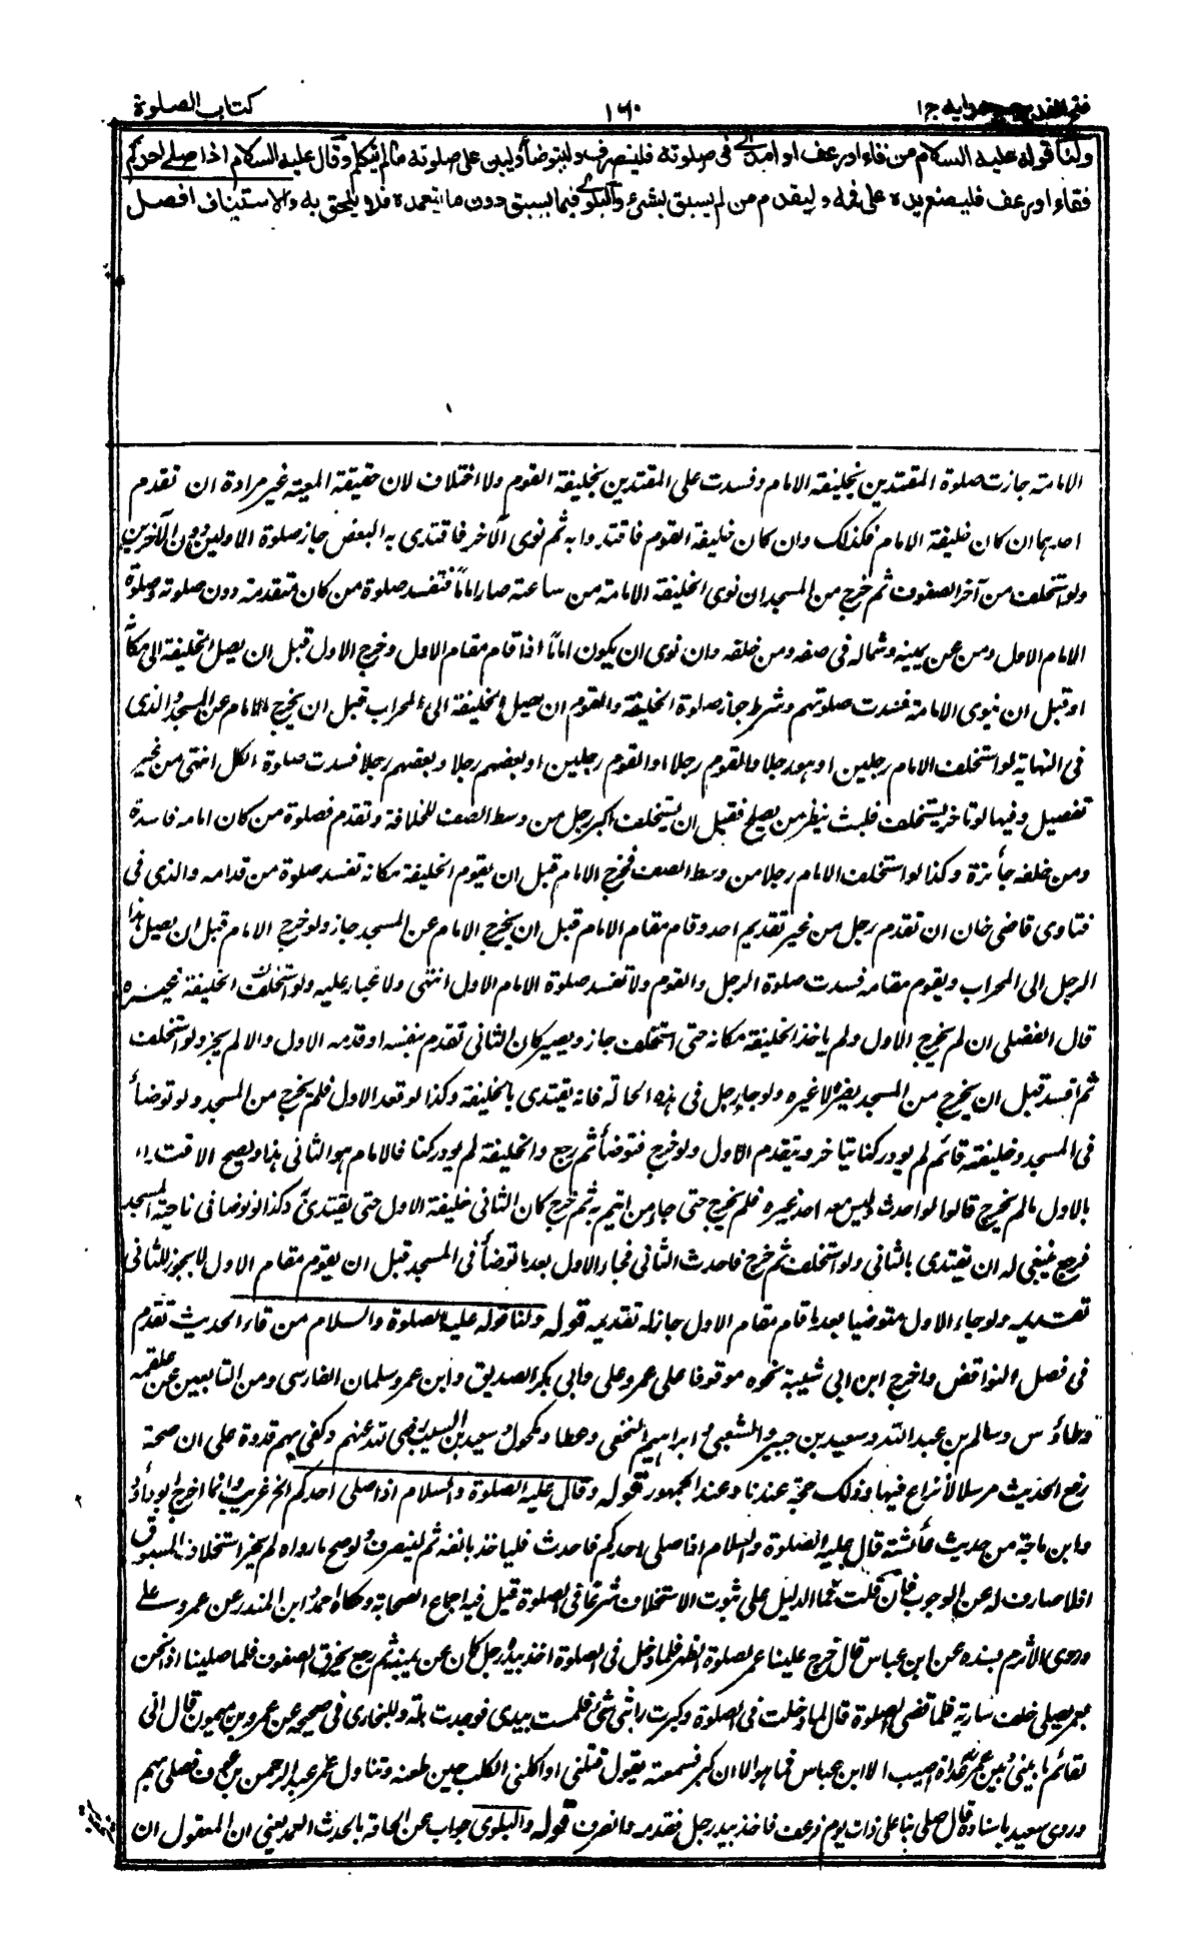 فتح القدير مع هدايه ج ١
١٦٠
كتاب الصلوة
ولنا قوله عليه السلام من قاء او رعف او امذى فى صلوته فلينصرف وليتوضأ وليبن على صلوته مالم يتكلم وقال عليه السلام اذا صلے احدكم
فقاء او رعف فليضع يده على فمه وليقدم من لم يسبق بشئ والبلوى فيما يسبق دون ما يتعمده فلا يلحق به والاستيناف افضل
الامامة جازت صلوة المقتدين بخليفة الامام وفسدت على المقتدين بخليفة القوم ولا اختلاف لان حقيقة المعية غير مرادة ان تقدم
احدهما ان كان خليفة الامام فكذلك وان كان خليفة القوم فاقتدوا به ثم نوى الآخر فاقتدى به البعض جاز صلوة الاولين دون الآخرين
ولو استخلف من آخر الصفوف ثم خرج من المسجد ان نوى الخليفة الامامة من ساعته صار اماما فتفسد صلوة من كان متقدمه دون صلوته وصلوة
الامام الاول ومن عن يمينه وشماله فى صفه ومن خلفه وان نوى ان يكون اماما اذا قام مقام الاول وخرج الاول قبل ان يصل الخليفة الى مكانه
او قبل ان ينوى الامامة فسدت صلوتهم وشرط جواز صلوة الخليفة والقوم ان يصل الخليفة الى المحراب قبل ان يخرج الامام عن المسجد والذى
فى النهاية لو استخلف الامام رجلين او هو رجلا والقوم رجلا او القوم رجلين او بعضهم رجلا وبعضهم رجلا فسدت صلوة الكل انتهى من غير
تفصيل وفيها لو تاخر يستخلف فلبث ينظر من يصلح فقبل ان يستخلف كبر رجل من وسط الصف للخلافة وتقدم فصلوة من كان امامه فاسدة
ومن خلفه جائزة وكذا لو استخلف الامام رجلا من وسط الصف فخرج الامام قبل ان يقوم الخليفة مكانه تفسد صلوة من قدامه والذى فى
فتاوى قاضى خان ان تقدم رجل من غير تقديم احد وقام مقام الامام قبل ان يخرج الامام عن المسجد جاز ولو خرج الامام قبل ان يصل هذا
الرجل الى المحراب ويقوم مقامه فسدت صلوة الرجل والقوم ولا تفسد صلوة الامام الاول انتهى ولا غبار عليه ولو استخلف الخليفة غيره
قال الفضلى ان لم يخرج الاول ولم ياخذ الخليفة مكانه حتى استخلف جاز ويصير كان الثانى تقدم بنفسه او قدمه الاول والا لم يجز ولو استخلف
ثم افسد قبل ان يخرج من المسجد يضره لا غيره ولو جاء رجل فى هذه الحالة فانه يقتدى بالخليفة وكذا لو قعد الاول فلم يخرج من المسجد ولو توضأ
فى المسجد وخليفته قائم لم يود ركنا يتاخر ويتقدم الاول ولو خرج فتوضأ ثم رجع والخليفة لم يود ركنا فالامام هو الثانى هذا ويصح الاقتداء
بالاول مالم يخرج قالوا لو احدث وليس معه احد غيره فلم يخرج حتى جاء من ائتم به ثم خرج كان الثانى خليفة الاول حتى يقتدى وكذا لو توضا فى ناحية المسجد
فرجع ينبغى له ان يقتدى بالثانى ولو استخلف ثم خرج فاحدث الثانى فجاء الاول بعد ما توضأ فى المسجد قبل ان يقوم مقام الاول لا يجوز للثانى
تقديمه ولو جاء الاول متوضيا بعد ما قام مقام الاول جاز له تقديمه قوله ولنا قوله عليه الصلوة والسلام من قاء الحديث تقدم
فى فصل النواقض واخرج ابن ابى شيبة نحوه موقوفا على عمر وعلى وابى بكر الصديق وابن عمر وسلمان الفارسى ومن التابعين عن علقمه
وطاؤس وسالم بن عبد الله وسعيد بن جبير والشعبى وابراهيم النخعى وعطا ومكحول وسعيد بن المسيب رضى الله عنهم وكفى بهم قدوة على ان صحة
رفع الحديث مرسلا لا نزاع فيها وذلك حجة عندنا وعند الجمهور قوله وقال عليه الصلوة والسلام اذا صلى احدكم الخ غريب وانما اخرج ابو داؤد
وابن ماجة من حديث عائشة قال عليه الصلوة والسلام اذا صلى احدكم فاحدث فلياخذ بانفه ثم لينصرف ولو صح ما رواه لم يجز استخلاف المسبوق
اذ لا صارف له عن الوجوب فان قلت فما الدليل على ثبوت الاستخلاف شرعا فى الصلوة قيل فيه اجماع الصحابة وحكاه احمد وابن المنذر عن عمر وعلے
وروى الاثرم بسنده عن ابن عباس قال خرج علينا عمر لصلوة الظهر فلما دخل فى الصلوة اخذ بيد رجل كان عن يمينه ثم رجع يخرق الصفوف فلما صلينا اذا نحن
بعمر يصلى خلف سارية فلما قضى الصلوة قال لما دخلت فى الصلوة وكبرت رابنى شئ فلمست بيدى فوجدت بلة وللبخارى فى صحيحه عن عمرو بن ميمون قال انى
لقائم ما بينى وبين عمر غداة اصيب الا ابن عباس فما هو الا ان كبر فسمعته يقول قتلنى او اكلنى الكلب حين طعنه وتناول عمر عبد الرحمن بن عوف فصلى بهم
وروى سعيد باسناده قال صلى بنا على ذات يوم فرعف فاخذ بيد رجل فقدمه وانصرف قوله والبلوى جواب عن الحاقه بالحدث العمد يعنى ان المعقول ان